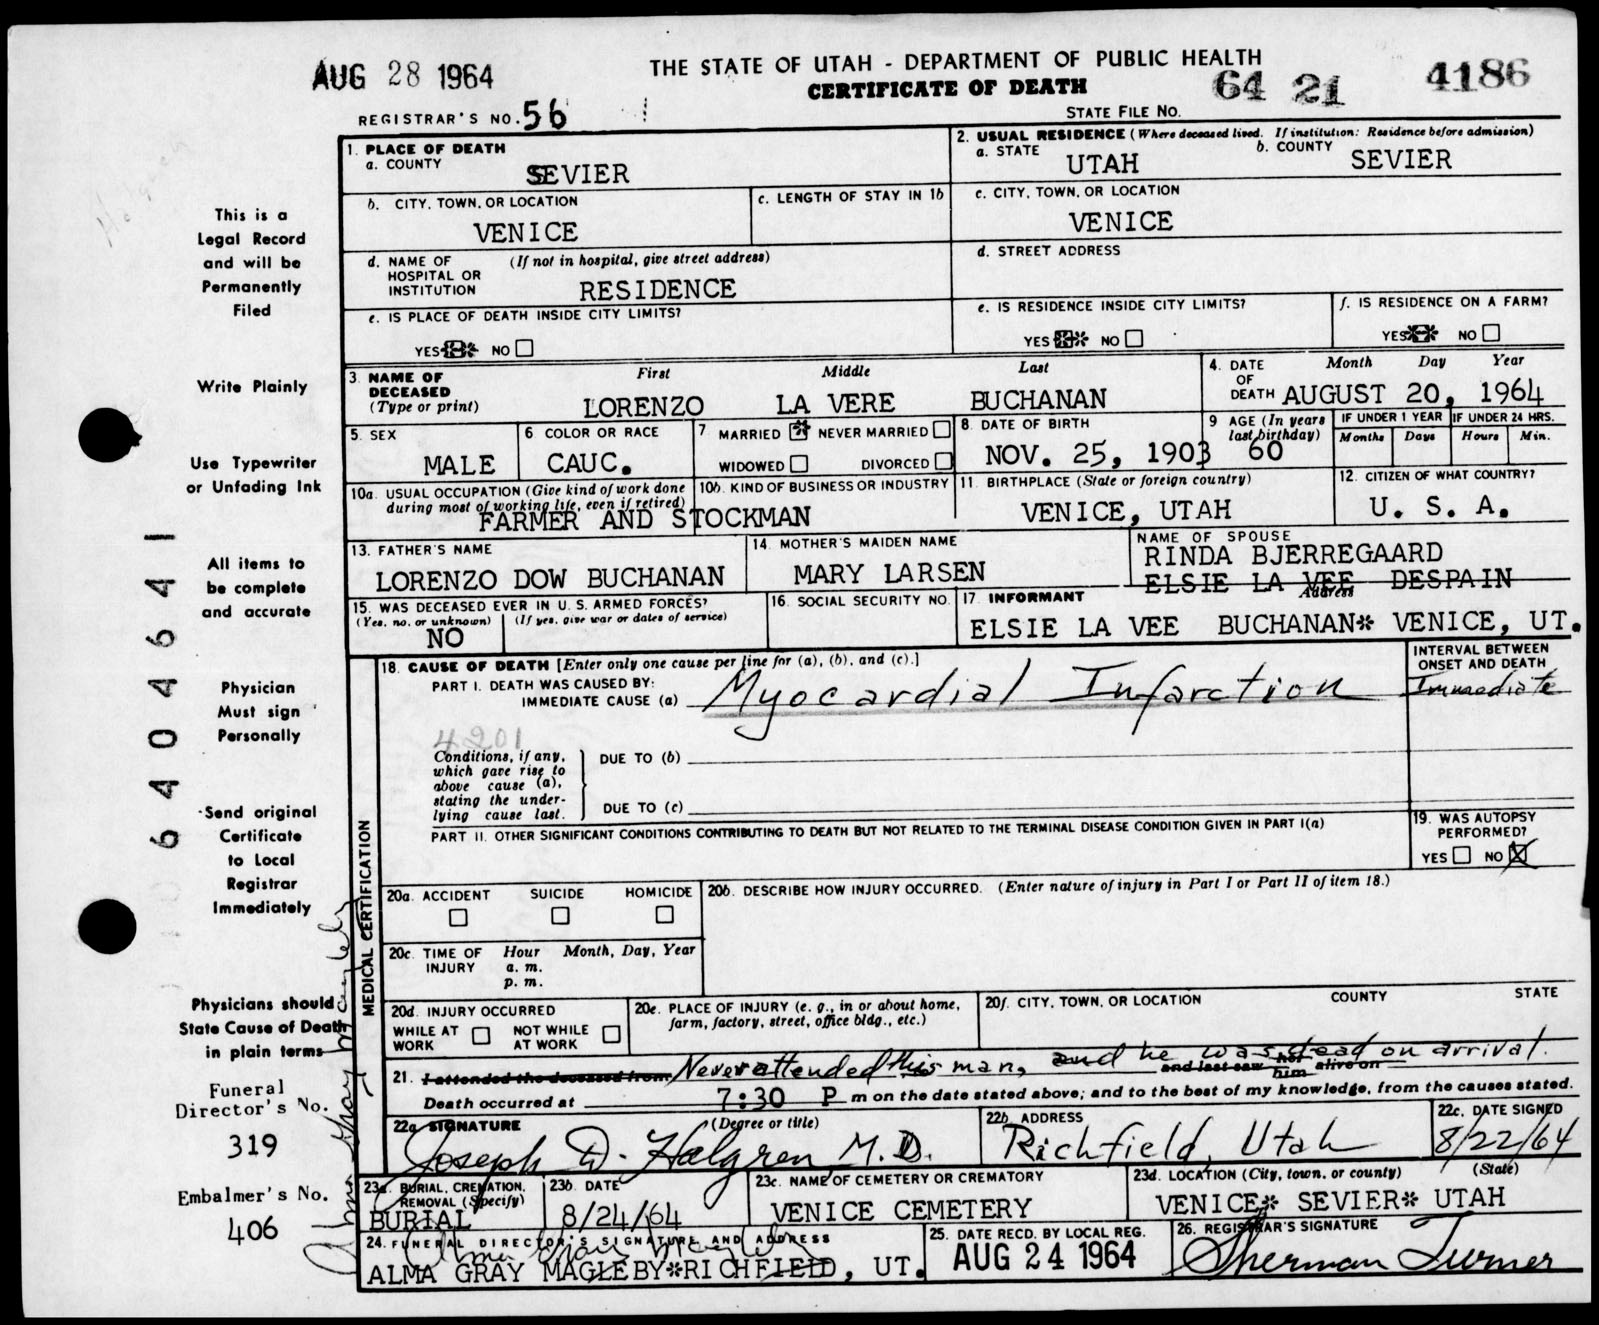 AUG 28 1964
THE STATE OF UTAH - DEPARTMENT OF PUBLIC HEALTH
CERTIFICATE OF DEATH
64 21 4186
REGISTRAR'S NO. 56
STATE FILE NO.
1. PLACE OF DEATH
a. COUNTY
SEVIER
2. USUAL RESIDENCE (Where deceased lived. If institution: Residence before admission)
a. STATE UTAH b. COUNTY SEVIER
b. CITY, TOWN, OR LOCATION
VENICE
c. LENGTH OF STAY IN 1b
c. CITY, TOWN, OR LOCATION
VENICE
d. NAME OF HOSPITAL OR INSTITUTION (If not in hospital, give street address)
RESIDENCE
d. STREET ADDRESS
e. IS PLACE OF DEATH INSIDE CITY LIMITS?
YES NO
e. IS RESIDENCE INSIDE CITY LIMITS?
YES NO
f. IS RESIDENCE ON A FARM?
YES NO
3. NAME OF DECEASED (Type or print)
First Middle Last
LORENZO LA VERE BUCHANAN
4. DATE OF DEATH Month Day Year
AUGUST 20, 1964
5. SEX
MALE
6 COLOR OR RACE
CAUC.
7 MARRIED NEVER MARRIED
WIDOWED DIVORCED
8. DATE OF BIRTH
NOV. 25, 1903
9 AGE (In years last birthday)
60
IF UNDER 1 YEAR IF UNDER 24 HRS.
Months Days Hours Min.
10a. USUAL OCCUPATION (Give kind of work done during most of working life, even if retired)
10b. KIND OF BUSINESS OR INDUSTRY
FARMER AND STOCKMAN
11. BIRTHPLACE (State or foreign country)
VENICE, UTAH
12. CITIZEN OF WHAT COUNTRY?
U. S. A.
13. FATHER'S NAME
LORENZO DOW BUCHANAN
14. MOTHER'S MAIDEN NAME
MARY LARSEN
NAME OF SPOUSE
RINDA BJERREGAARD
ELSIE LA VEE DESPAIN
15. WAS DECEASED EVER IN U. S. ARMED FORCES?
(Yes, no, or unknown) (If yes, give war or dates of service)
NO
16. SOCIAL SECURITY NO.
17 INFORMANT Address
ELSIE LA VEE BUCHANAN* VENICE, UT.
18. CAUSE OF DEATH [Enter only one cause per line for (a), (b), and (c).]
PART I. DEATH WAS CAUSED BY:
IMMEDIATE CAUSE (a) Myocardial Infarction
INTERVAL BETWEEN ONSET AND DEATH
Immediate
4201
Conditions, if any, which gave rise to above cause (a), stating the under-lying cause last.
DUE TO (b)
DUE TO (c)
PART II. OTHER SIGNIFICANT CONDITIONS CONTRIBUTING TO DEATH BUT NOT RELATED TO THE TERMINAL DISEASE CONDITION GIVEN IN PART I(a)
19. WAS AUTOPSY PERFORMED?
YES NO
20a. ACCIDENT SUICIDE HOMICIDE
20b. DESCRIBE HOW INJURY OCCURRED. (Enter nature of injury in Part I or Part II of item 18.)
20c. TIME OF INJURY Hour Month, Day, Year
a. m.
p. m.
20d. INJURY OCCURRED
WHILE AT WORK NOT WHILE AT WORK
20e. PLACE OF INJURY (e. g., in or about home, farm, factory, street, office bldg., etc.)
20f. CITY, TOWN, OR LOCATION COUNTY STATE
21. I attended the deceased from Never attended this man, and he was dead on arrival.
and last saw her him alive on
Death occurred at 7:30 P m on the date stated above; and to the best of my knowledge, from the causes stated.
22a SIGNATURE (Degree or title)
Joseph D. Halgren M.D.
22b ADDRESS
Richfield, Utah
22c. DATE SIGNED
8/22/64
23a. BURIAL, CREMATION, REMOVAL (Specify)
BURIAL
23b. DATE
8/24/64
23c. NAME OF CEMETERY OR CREMATORY
VENICE CEMETERY
23d. LOCATION (City, town, or county) (State)
VENICE* SEVIER* UTAH
24. FUNERAL DIRECTOR'S SIGNATURE AND ADDRESS
Alma Gray Magleby
ALMA GRAY MAGLEBY*RICHFIELD, UT.
25. DATE RECD. BY LOCAL REG.
AUG 24 1964
26. REGISTRAR'S SIGNATURE
Sherman Turner
This is a
Legal Record
and will be
Permanently
Filed
Write Plainly
Use Typewriter
or Unfading Ink
All items to
be complete
and accurate
Physician
Must sign
Personally
Send original
Certificate
to Local
Registrar
Immediately
Physicians should
State Cause of Death
in plain terms
Funeral
Director's No.
319
Embalmer's No.
406
MEDICAL CERTIFICATION
Alma Gray Magleby
6404641